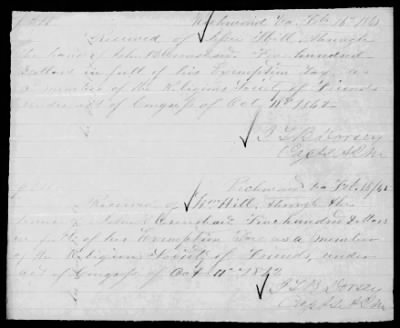 $500 Richmond Va. Feb. 16th 186
Received of Hill through
the hand of John B Crenshaw Five hundred
Dollars in full of his Exemption Tax, as
a member of the Religious Society of Friends
under act of Congress of Oct 11th 1862
J L B Dorsey
Capt & A.Q.M.
$500 Richmond Va Feb. 16/63
Received of Wm Hill, through the
hands of John B Crenshaw Five hundred Dollars
in full of his Exemption Tax as a member
of the Religious Society of Friends, under
act of Congress of Oct 11th 1862
J L B Dorsey
Capt & A.Q.M.